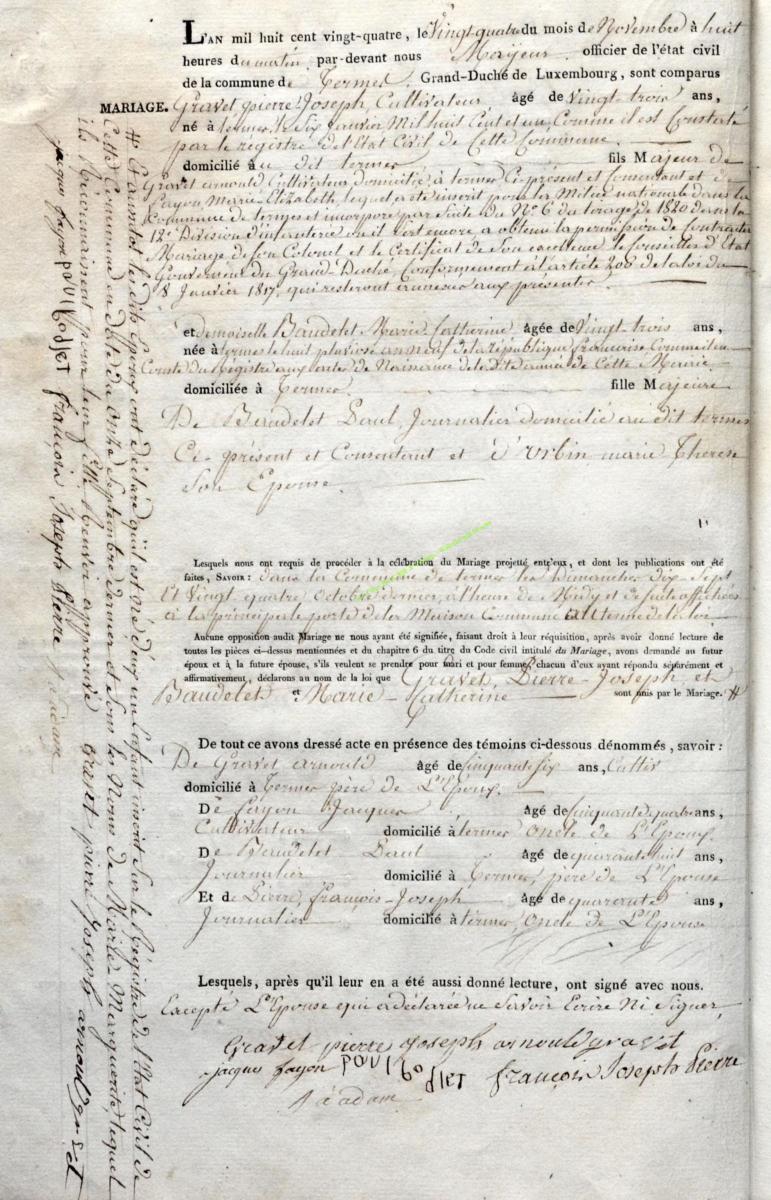 L'AN mil huit cent vingt-quatre, le Vingt quatre du mois de Novembre à huit
heures du matin, par-devant nous Mayeur officier de l'état civil
de la commune de Termes, Grand-Duché de Luxembourg, sont comparus
MARIAGE. Gravet pierre Joseph, Cultivateur, âgé de Vingt-trois ans,
né à termes le Six Janvier Mil huit Cent et un, Comme il est Constaté
par le registre de l'Etat Civil de Cette Commune
domicilié à u dit termes fils Majeur de
Gravet arnould Cultivateur domicilié à termes Ci présent et Consentant et de
fayon Marie-Elizabeth, lequel a été inscrit pour la Milice nationale dans la
Commune de termes et incorporé par Suite du N° 6 du tirage de 1820 dans la
12e Division d'infanterie où il est encore a obtenu la permission de Contracter
Mariage de Son Colonel et le Certificat de Son excellence le Conseiller d'Etat
Gouverneur du Grand-Duché, Conformement à l'article 208 de la loi du
8 Janvier 1817, qui resteront annexés aux presentes
et demoiselle Baudelet Marie Catherine âgée de Vingt-trois ans,
née à termes le huit pluviose an neuf de la république française Comme il en
Conste du Régistre aux actes de Naissance de la dite année de Cette Mairie
domiciliée à Termes fille Majeure
De Baudelet Paul, Journalier domicilié au dit termes
Ci-présent et Consentant et d'Urbin marie Therese
Son Epouse.
Lesquels nous ont requis de procéder à la célébration du Mariage projetté entr'eux, et dont les publications ont été
faites, SAVOIR : dans la Commune de termes les dimanches dix-Sept
Et Vingt quatre Octobre dernier, à l'heure de Midy et de suite affichées
à la principale porte de la Maison Commune au terme de la loi
Aucune opposition audit Mariage ne nous ayant été signifiée, faisant droit à leur réquisition, après avoir donné lecture de
toutes les pièces ci-dessus mentionnées et du chapitre 6 du titre du Code civil intitulé du Mariage, avons demandé au futur
époux et à la future épouse, s'ils veulent se prendre pour mari et pour femme, chacun d'eux ayant répondu séparément et
affirmativement, déclarons au nom de la loi que Gravet, Pierre-Joseph, et
Baudelet et Marie-Catherine sont unis par le Mariage. #
De tout ce avons dressé acte en présence des témoins ci-dessous dénommés, savoir :
De Gravet arnould âgé de Cinquante Six ans, Cultiv
domicilié à Termes père de L'Epoux.
De fayon Jacques âgé de Cinquante quatre ans,
Cultivateur domicilié à termes Oncle de L'Epoux.
De Baudelet Paul âgé de quarante huit ans,
Journalier domicilié à Termes, père de L'Epouse
Et de Pierre, françois-Joseph âgé de quarente ans,
Journalier domicilié à termes, Oncle de L'Epouse
Lesquels, après qu'il leur en a été aussi donné lecture, ont signé avec nous.
Excepté L'Epouse qui a déclarée ne Savoir Ecrire Ni Signer,
Gravet pierre joseph arnould gravet
jacques fayon POVL bodlet françois Joseph Pierre
adam
# Et aussitot les dits Epoux ont déclaré qu'il est né d'eux un Enfant inscrit Sur le Régistre de l'Etat Civil de
Cette Commune en date du Onze Septembre dernier et Sous les Noms de Marguerite, lequel
ils Reconnaissent pour leur fille. Renvoi approuvé gravet pierre joseph arnould gravet
jacques fayon POVL bodlet françois Joseph Pierre adam